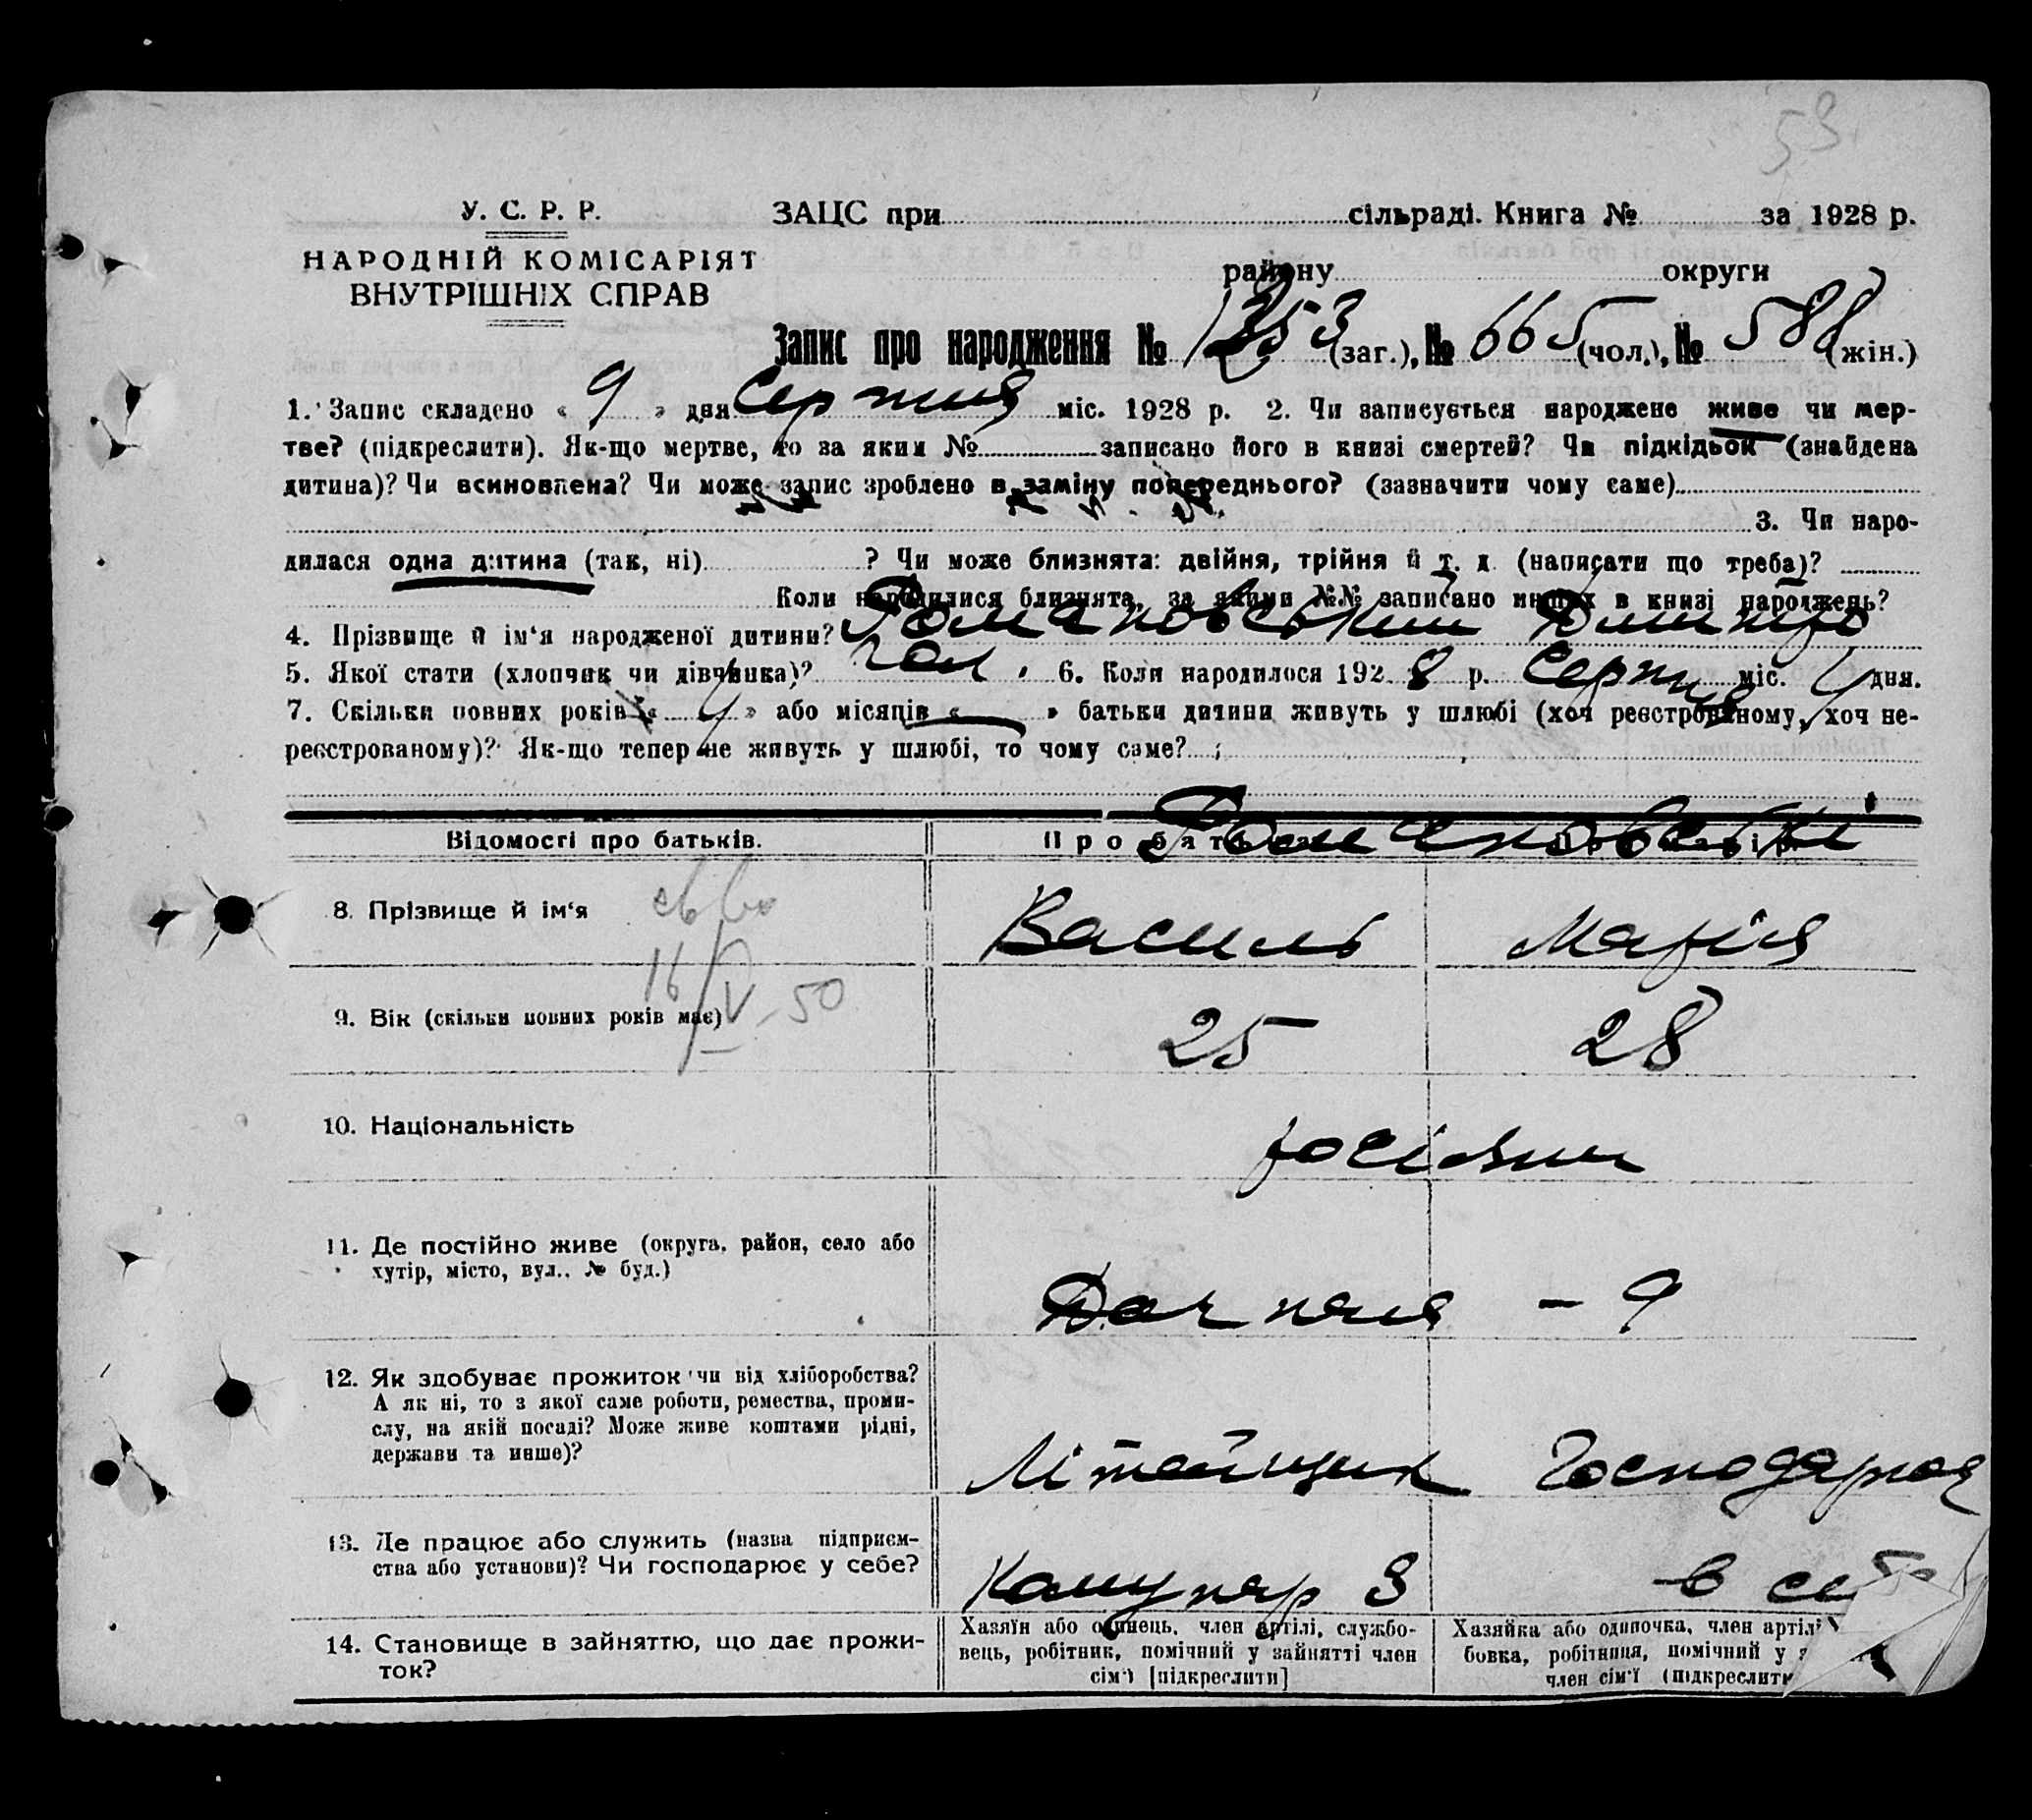 53
У. С. Р. Р.
НАРОДНІЙ КОМІСАРІЯТ
ВНУТРІШНІХ СПРАВ
ЗАЦС при сільраді. Книга № за 1928 р.
району округи
Запис про народження № 1253 (заг.), № 665 (чол.), № 588 (жін.)
1. Запис складено « 9 » дня Серпня міс. 1928 р. 2. Чи записується народжене живе чи мер-
тве? (підкреслити). Як-що мертве, то за яким № записано його в книзі смертей? Чи підкідьок (знайдена
дитина)? Чи всиновлена? Чи може запис зроблено в заміну попереднього? (зазначити чому саме)
3. Чи наро-
дилася одна дитина (так, ні) ? Чи може близнята: двійня, трійня й т. д. (написати що треба)?
Коли народилися близнята, за якими №№ записано инших в книзі народжень?
4. Прізвище й ім‘я народженої дитини? Романовський Дмитро
5. Якої стати (хлопчик чи дівчинка)? чол. 6. Коли народилося 1928 р. Серпня міс. 4 дня.
7. Скільки повних років « 4 » або місяців « — » батьки дитини живуть у шлюбі (хоч реєстрованому, хоч не-
реєстрованому)? Як-що тепер не живуть у шлюбі, то чому саме?
Романовські
Відомості про батьків.
8. Прізвище й ім‘я Василь Марія
16/V-50
9. Вік (скільки повних років має) 25 28
10. Національність росіяни
11. Де постійно живе (округа, район, село або
хутір, місто, вул., № буд.)
Дачная - 9
12. Як здобуває прожиток чи від хліборобства?
А як ні, то з якої саме роботи, ремества, проми-
слу, на якій посаді? Може живе коштами рідні,
держави та инше)?
Літейщик Господарює
13. Де працює або служить (назва підприєм-
ства або установи)? Чи господарює у себе?
Комунар 3 в себе
14. Становище в зайняттю, що дає прожи-
ток?
Хазяїн або одинець, член артілі, службо-
вець, робітник, помічний у зайнятті член
сім‘ї [підкреслити]
Хазяйка або одиночка, член артілі
бовка, робітниця, помічний у
член сім‘ї (підкреслити